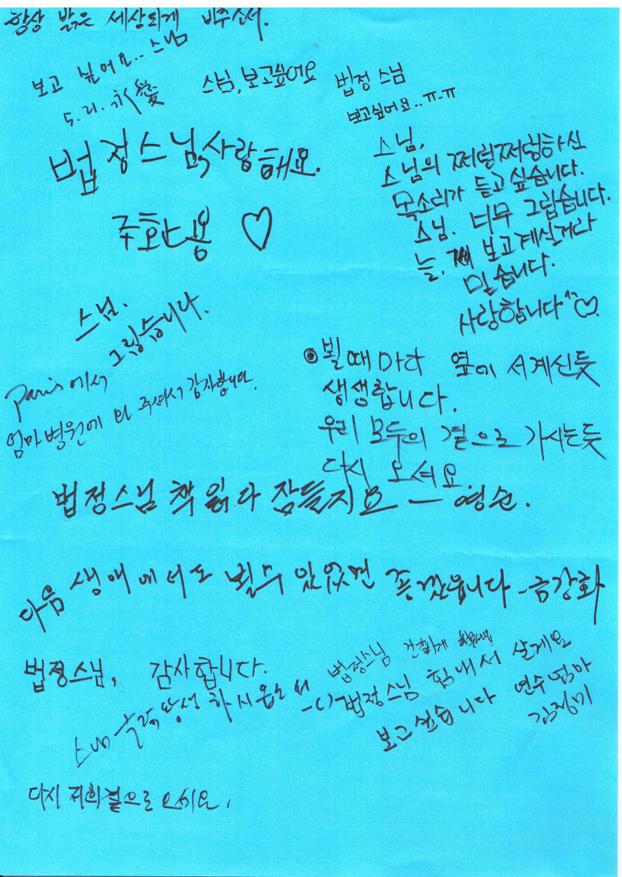 항상 밝은 세상되게 비추소서.
보고 싶어요.. 스님
5. 21.
스님, 보고싶어요
법정 스님
보고싶어요..ㅠ-ㅠ
법정스님, 사랑해요.
주환용 ♡
스님,
스님의 쩌렁쩌렁하신
목소리가 듣고 싶습니다.
스님. 너무 그립습니다.
늘, 보고계실거라
믿습니다.
사랑합니다^^♡.
스님.
그립습니다.
Paris에서
엄마병원에 와 주셔서 감사합니다.
뵐때마다 옆에 서계신듯
생생합니다.
우리 모두의 곁으로 가시는듯
다시 오셔요.
법정스님 책 읽다 잠들지요 — 영순.
다음 생애에서도 뵐수 있었면 좋겠읍니다 - 금강화
법정스님, 감사합니다.
하시옵소서
법정스님
법정스님 힘내서 살게요
보고싶습니다 연수엄마
김정미
다시 저희곁으로 오세요.